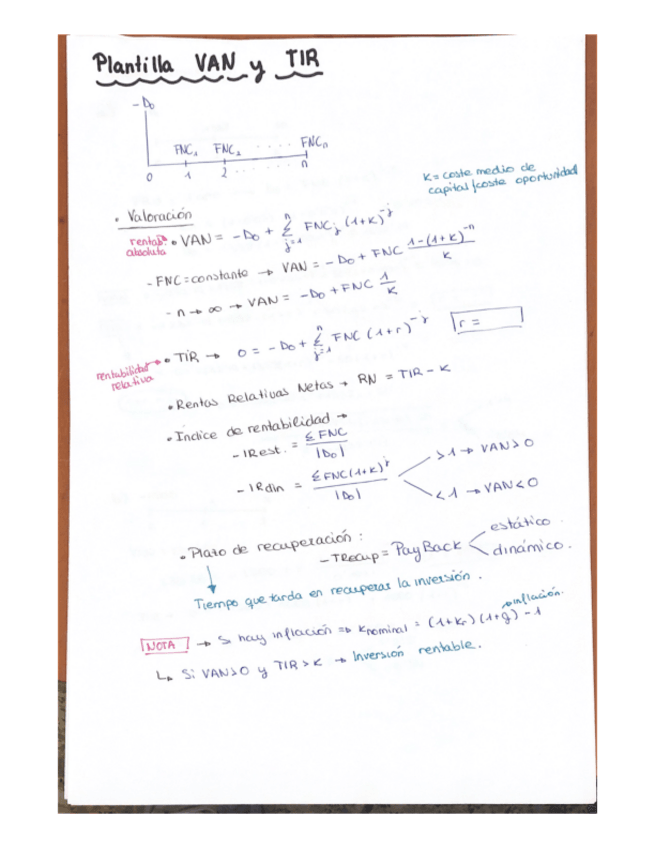 Plantilla VAN y TIR
- Do
FNC₁ FNC₂ .... FNCn
0 1 2 ....... n
K = coste medio de
capital/coste oportunidad
• Valoración
rentab. absoluta • VAN = -Do + Σ(j=1, n) FNCj (1+K)^-j
- FNC = constante → VAN = -Do + FNC (1-(1+K)^-n)/K
- n → ∞ → VAN = -Do + FNC 1/K
rentabilidad relativa → • TIR → 0 = -Do + Σ(j=1, n) FNC (1+r)^-j
r =
• Rentas Relativas Netas → RN = TIR - K
• Índice de rentabilidad →
- IRest. = Σ FNC / |Do|
- IRdin = Σ FNC(1+K)^j / |Do|
>1 → VAN>0
<1 → VAN<0
• Plato de recuperación :
- TRecup = PayBack
estático .
dinámico .
Tiempo que tarda en recuperas la inversión .
NOTA → S hay inflación => Knominal = (1+Kr) (1+g) -1
→ inflación.
↳ Si VAN>0 y TIR>K → Inversión rentable.